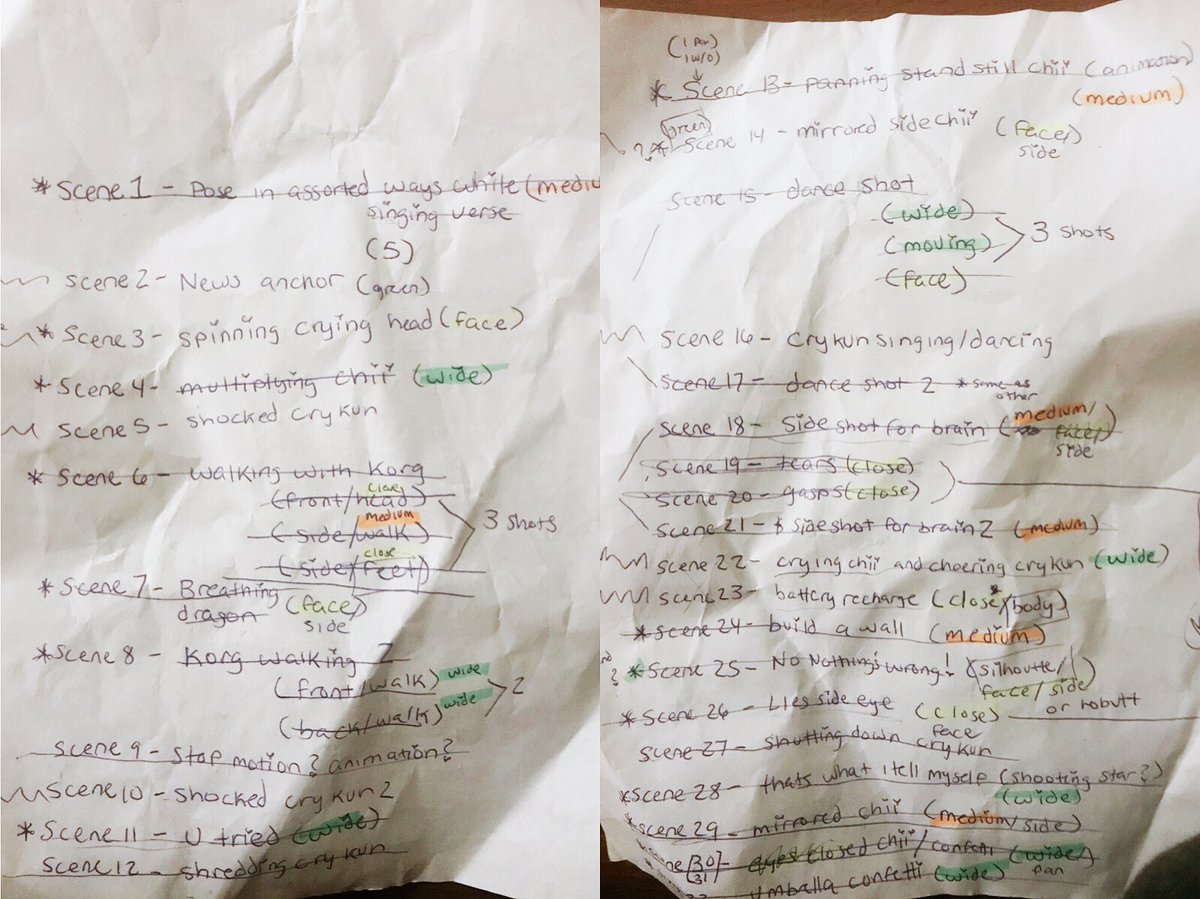 *Scene 1 - Pose in assorted ways while (mediu
singing verse
(5)
scene 2 - News anchor (green)
*Scene 3 - spinning crying head (face)
*Scene 4 - multiplying chii (wide)
Scene 5 - shocked crykun
*Scene 6 - walking with Korg
close
(front/head)
medium
(side/walk)
3 shots
close
(side/feet)
*Scene 7 - Breathing
dragon (face)
side
*Scene 8 - Korg walking 2
(front/walk) wide
2
(back/walk) wide
Scene 9 - Stop motion? animation?
Scene 10 - shocked crykun 2
*Scene 11 - U tried (wide)
Scene 12 - shredding crykun
(1 pan)
1 w/o)
*Scene 13 - panning stand still chii (animation)
(medium)
(green)
?* Scene 14 - mirrored side chii (face/)
side
Scene 15 - dance shot
(wide)
(moving)
3 shots
(face)
Scene 16 - Crykun singing/dancing
Scene 17 - dance shot 2 *same as
other
medium/
Scene 18 - Side shot for brain (face/)
side
Scene 19 - tears (close)
Scene 20 - gasps (close)
Scene 21 - side shot for brain 2 (medium)
Scene 22 - crying chii and cheering crykun (wide)
Scene 23 - battery recharge (close*/body)
*Scene 24 - build a wall (medium)
? *Scene 25 - No Nothing's wrong! (silhoutte/)
face/side
or robutt
*Scene 26 - Lies side eye (close)
face
Scene 27 - shutting down crykun
*Scene 28 - thats what i tell myself (shooting star?)
(wide)
*scene 29 - mirrored chii (medium/side)
ene 30/ - closed chii/confetti (wide/
31 pan
umballa confetti (wide)